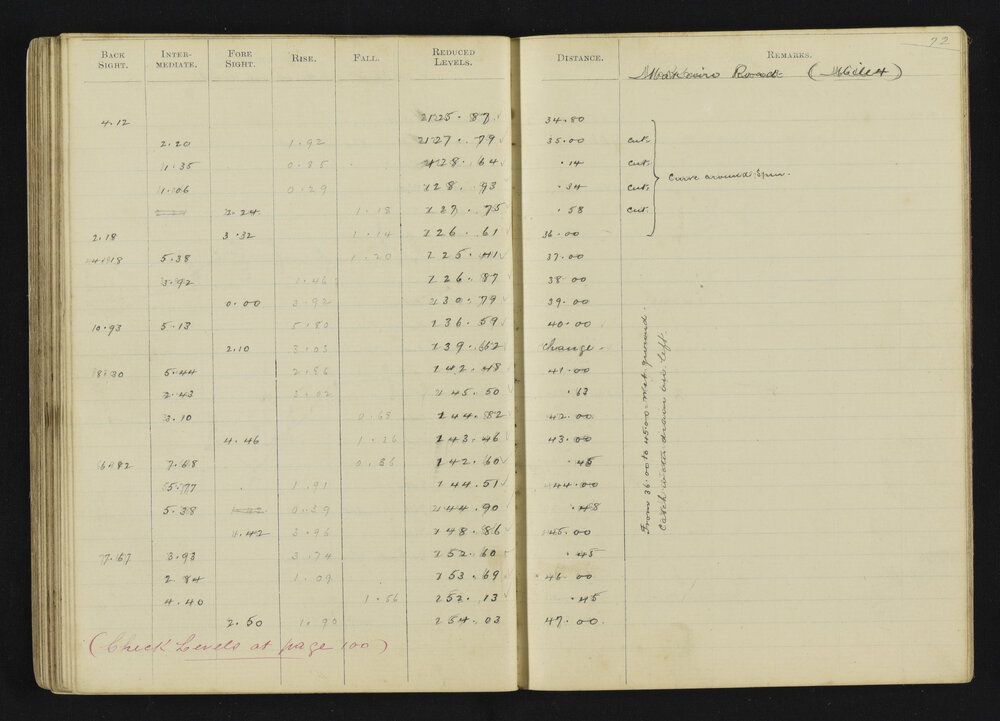 BACK SIGHT. INTER-MEDIATE. FORE SIGHT. RISE. FALL. REDUCED LEVELS. DISTANCE. REMARKS.
72
Road (Mile 4)
4.12 125.87 34.80
2.20 1.92 127.79 35.00 cut
1.35 0.85 128.64 .14 cut
1.06 0.29 128.93 .34 cut Curve around Spur.
2.24 2.24 1.18 127.75 .58 cut
2.18 3.32 1.14 126.61 36.00
4.18 5.38 1.20 125.41 37.00
3.92 1.46 126.87 38.00
0.00 3.92 130.79 39.00
10.93 5.13 5.80 136.59 40.00
2.10 3.03 139.62 change.
8.30 5.44 2.86 142.48 41.00
2.43 3.02 145.50 .63
3.10 0.68 144.82 42.00
4.46 1.36 143.46 43.00
6.82 7.68 0.86 142.60 .45
5.77 1.91 144.51 44.00
5.38 1.42 0.39 144.90 .48
1.42 3.96 148.86 45.00
7.67 3.93 3.74 152.60 .45
2.84 1.09 153.69 46.00
4.40 1.56 152.13 .45
2.50 1.90 154.03 47.00
From 36.00 to 45.00 wet ground.
Catch water drain on left.
(Check Levels at page 100)